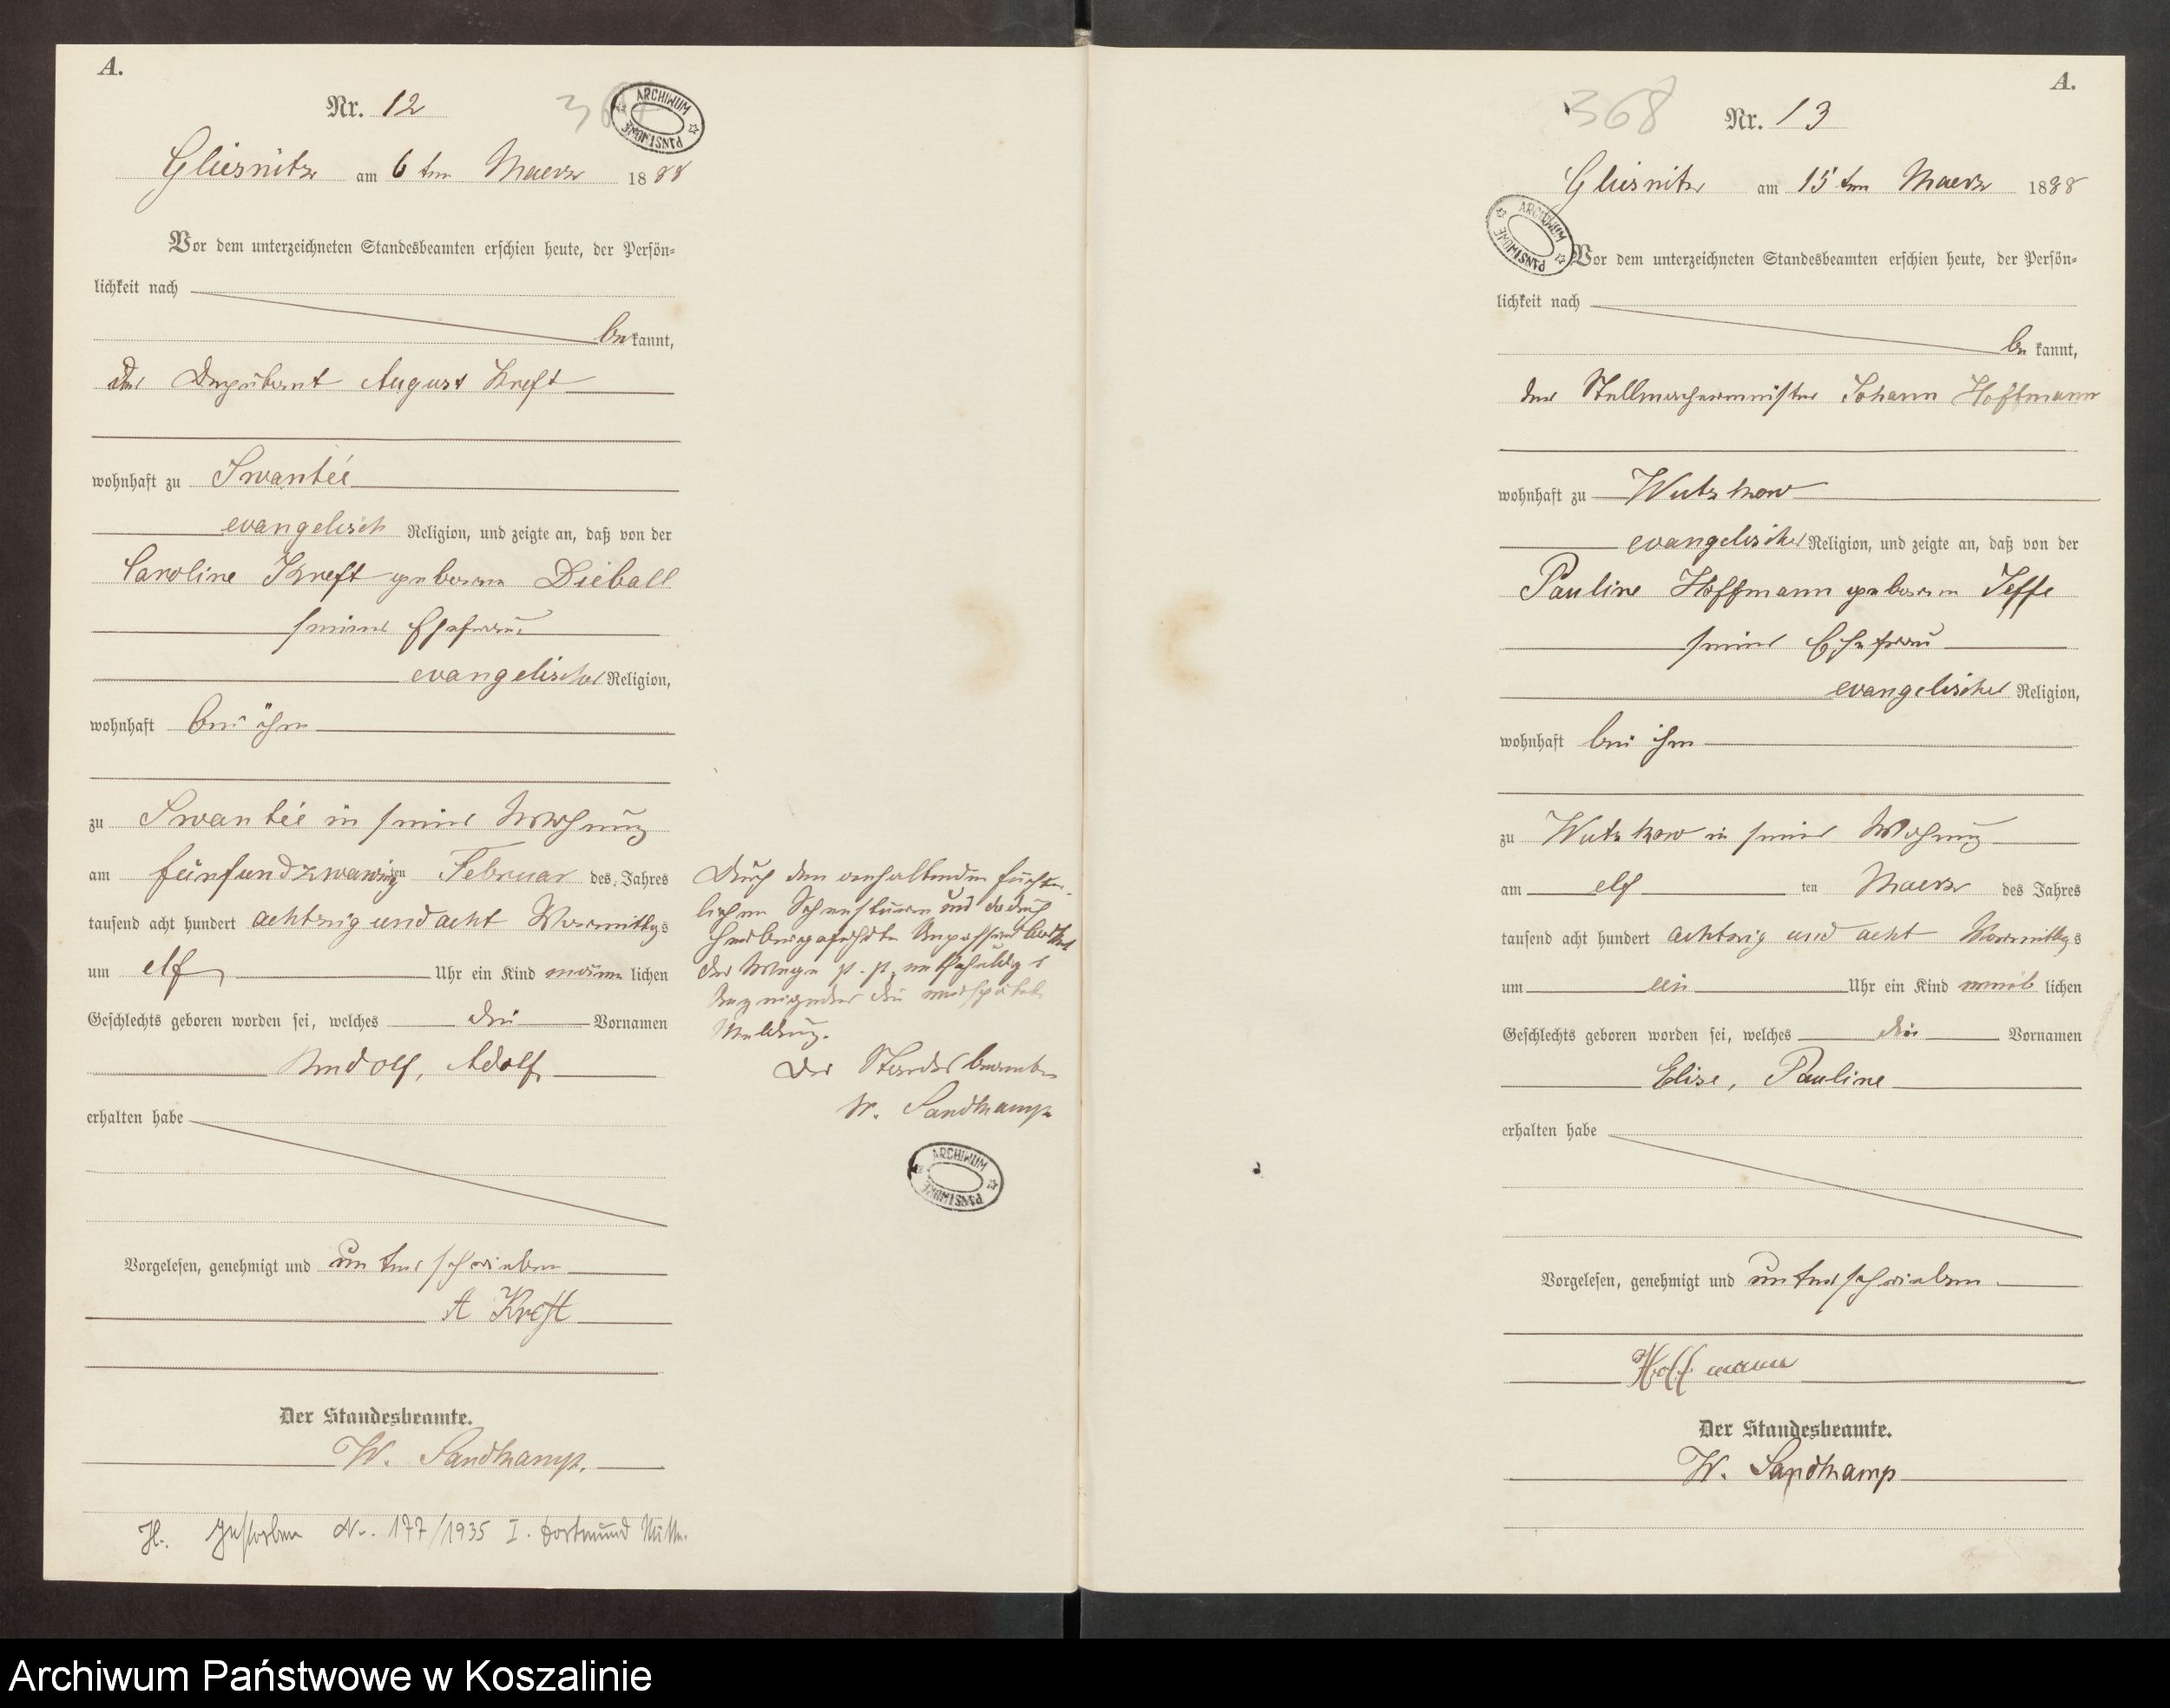 A.
Nr. 12
ARCHIWUM PAŃSTWOWE
Gliesnitz am 6 ten Maerz 1888
Vor dem unterzeichneten Standesbeamten erschien heute, der Persön-
lichkeit nach
bekannt,
der Deputant August Kreft
wohnhaft zu Swantee
evangelisch Religion, und zeigte an, daß von der
Caroline Kreft geborene Dieball
seiner Ehefrau
evangelischer Religion,
wohnhaft bei ihm
zu Swantee in seiner Wohnung
am fünfundzwanzigten Februar des Jahres
tausend acht hundert achtzig und acht Vormittags
um elf Uhr ein Kind männlichen
Geschlechts geboren worden sei, welches die Vornamen
Rudolf, Adolf
erhalten habe
Vorgelesen, genehmigt und unterschrieben
A Kreft
Der Standesbeamte.
W. Sandkamp.
H. Gestorben Nr. 177/1935 I. Dortmund Mitte.
Durch den anhaltenden fürchter-
lichen Schneesturm und dadurch
herbeigeführte Unpassierbarkeit
der Wege p. p. entschuldigt
Anzeigender die verspätete
Meldung.
Der Standesbeamte
W. Sandkamp
ARCHIWUM PAŃSTWOWE
A.
368
Nr. 13
Gliesnitz am 15 ten Maerz 1888
ARCHIWUM PAŃSTWOWE
Vor dem unterzeichneten Standesbeamten erschien heute, der Persön-
lichkeit nach
bekannt,
der Stellmachermeister Johann Hoffmann
wohnhaft zu Wutzkow
evangelischer Religion, und zeigte an, daß von der
Pauline Hoffmann geboren Jeffe
seiner Ehefrau
evangelischer Religion,
wohnhaft bei ihm
zu Wutzkow in seiner Wohnung
am elf ten Maerz des Jahres
tausend acht hundert achtzig und acht Vormittags
um ein Uhr ein Kind weiblichen
Geschlechts geboren worden sei, welches die Vornamen
Elise, Pauline
erhalten habe
Vorgelesen, genehmigt und unterschrieben
Hoffmann
Der Standesbeamte.
W. Sandkamp
Archiwum Państwowe w Koszalinie